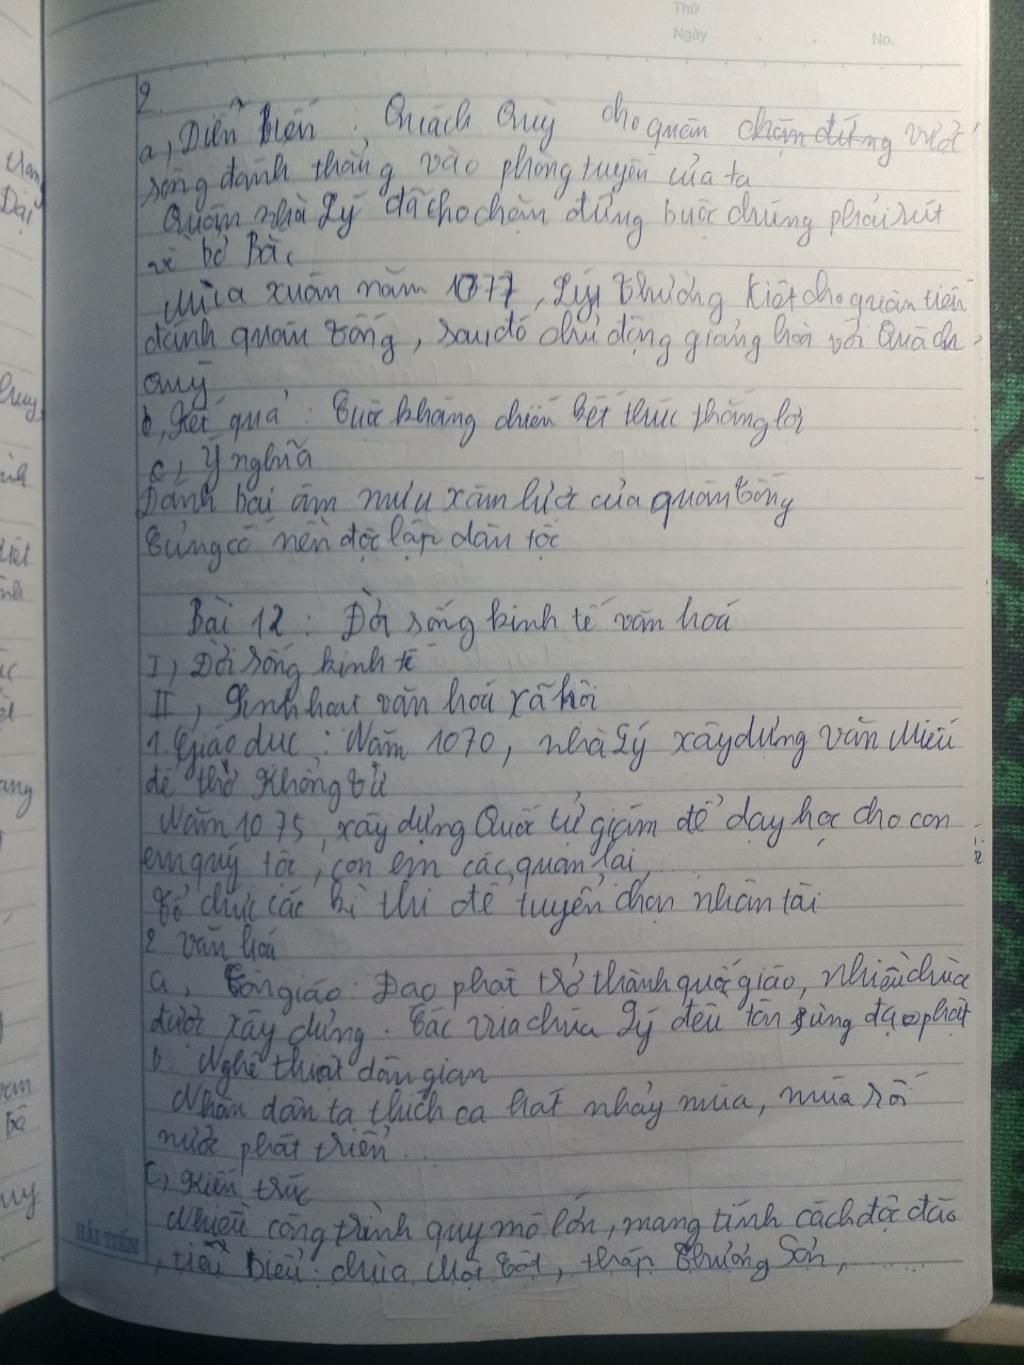 Thứ
Ngày . . No.
2.
a, Diễn biến : Quách Quỳ cho quân chặn đứng vượt
sông đánh thẳng vào phòng tuyến của ta
Quân nhà Lý đã cho chặn đứng buộc chúng phải rút
về bờ Bắc
Mùa xuân năm 1077, Lý Thường Kiệt cho quân tiến
đánh quân Tống, sau đó chủ động giảng hoà với Quách
Quỳ
b, Kết quả : Cuộc kháng chiến kết thúc thắng lợi
c, Ý nghĩa
Đánh bại âm mưu xâm lược của quân Tống
Củng cố nền độc lập dân tộc
Bài 12 : Đời sống kinh tế văn hoá
I, Đời sống kinh tế
II, Sinh hoạt văn hoá xã hội
1. Giáo dục : Năm 1070, nhà Lý xây dựng văn Miếu
để thờ Khổng Tử
Năm 1075, xây dựng Quốc tử giám để dạy học cho con
em quý tộc, con em các quan lại
Tổ chức các kì thi để tuyển chọn nhân tài
2. Văn hoá
a, Tôn giáo : Đạo phật trở thành quốc giáo, nhiều chùa
được xây dựng. Các vua chúa Lý đều tôn sùng đạo phật
b. Nghệ thuật dân gian
Nhân dân ta thích ca hát nhảy múa, múa rối
nước phát triển...
c, Kiến trúc
Nhiều công trình quy mô lớn, mang tính cách độc đáo
, tiêu biểu : chùa Một Cột, tháp Chương Sơn, .......
HẢI TIẾN